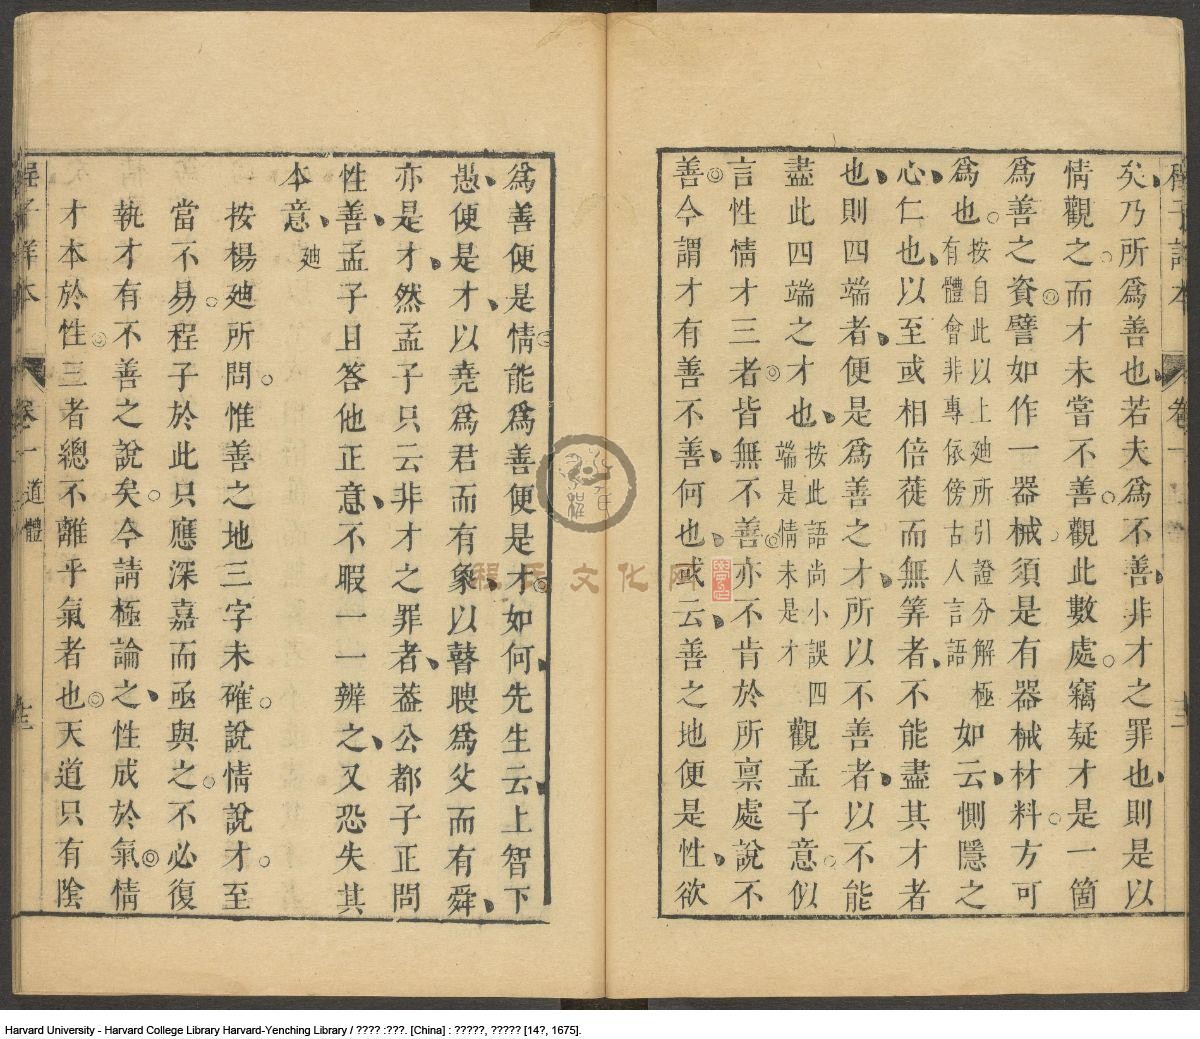 程子詳本 卷一 十二
矣乃所爲善也若夫爲不善非才之罪也則是以
情觀之而才未嘗不善觀此數處竊疑才是一箇
爲善之資譬如作一器械須是有器械材料方可
爲也按自此以上廸所引證分解極有體會非專依傍古人言語如云惻隱之
心仁也以至或相倍蓰而無筭者不能盡其才者
也則四端者便是爲善之才所以不善者以不能
盡此四端之才也按此語尚小誤四端是情未是才觀孟子意似
言性情才三者皆無不善亦不肯於所禀處說不
善今謂才有善不善何也或云善之地便是性欲
爲善便是情能爲善便是才如何先生云上智下
愚便是才以堯爲君而有象以瞽瞍爲父而有舜
亦是才然孟子只云非才之罪者葢公都子正問
性善孟子且答他正意不暇一一辨之又恐失其
本意廸
按楊廸所問惟善之地三字未確說情說才至
當不易程子於此只應深嘉而亟與之不必復
執才有不善之說矣今請極論之性成於氣情
才本於性三者總不離乎氣者也天道只有陰
程子詳本 卷一 道體 十二
程氏文化网
Harvard University - Harvard College Library Harvard-Yenching Library / ???? :???. [China] : ?????, ????? [14?, 1675].